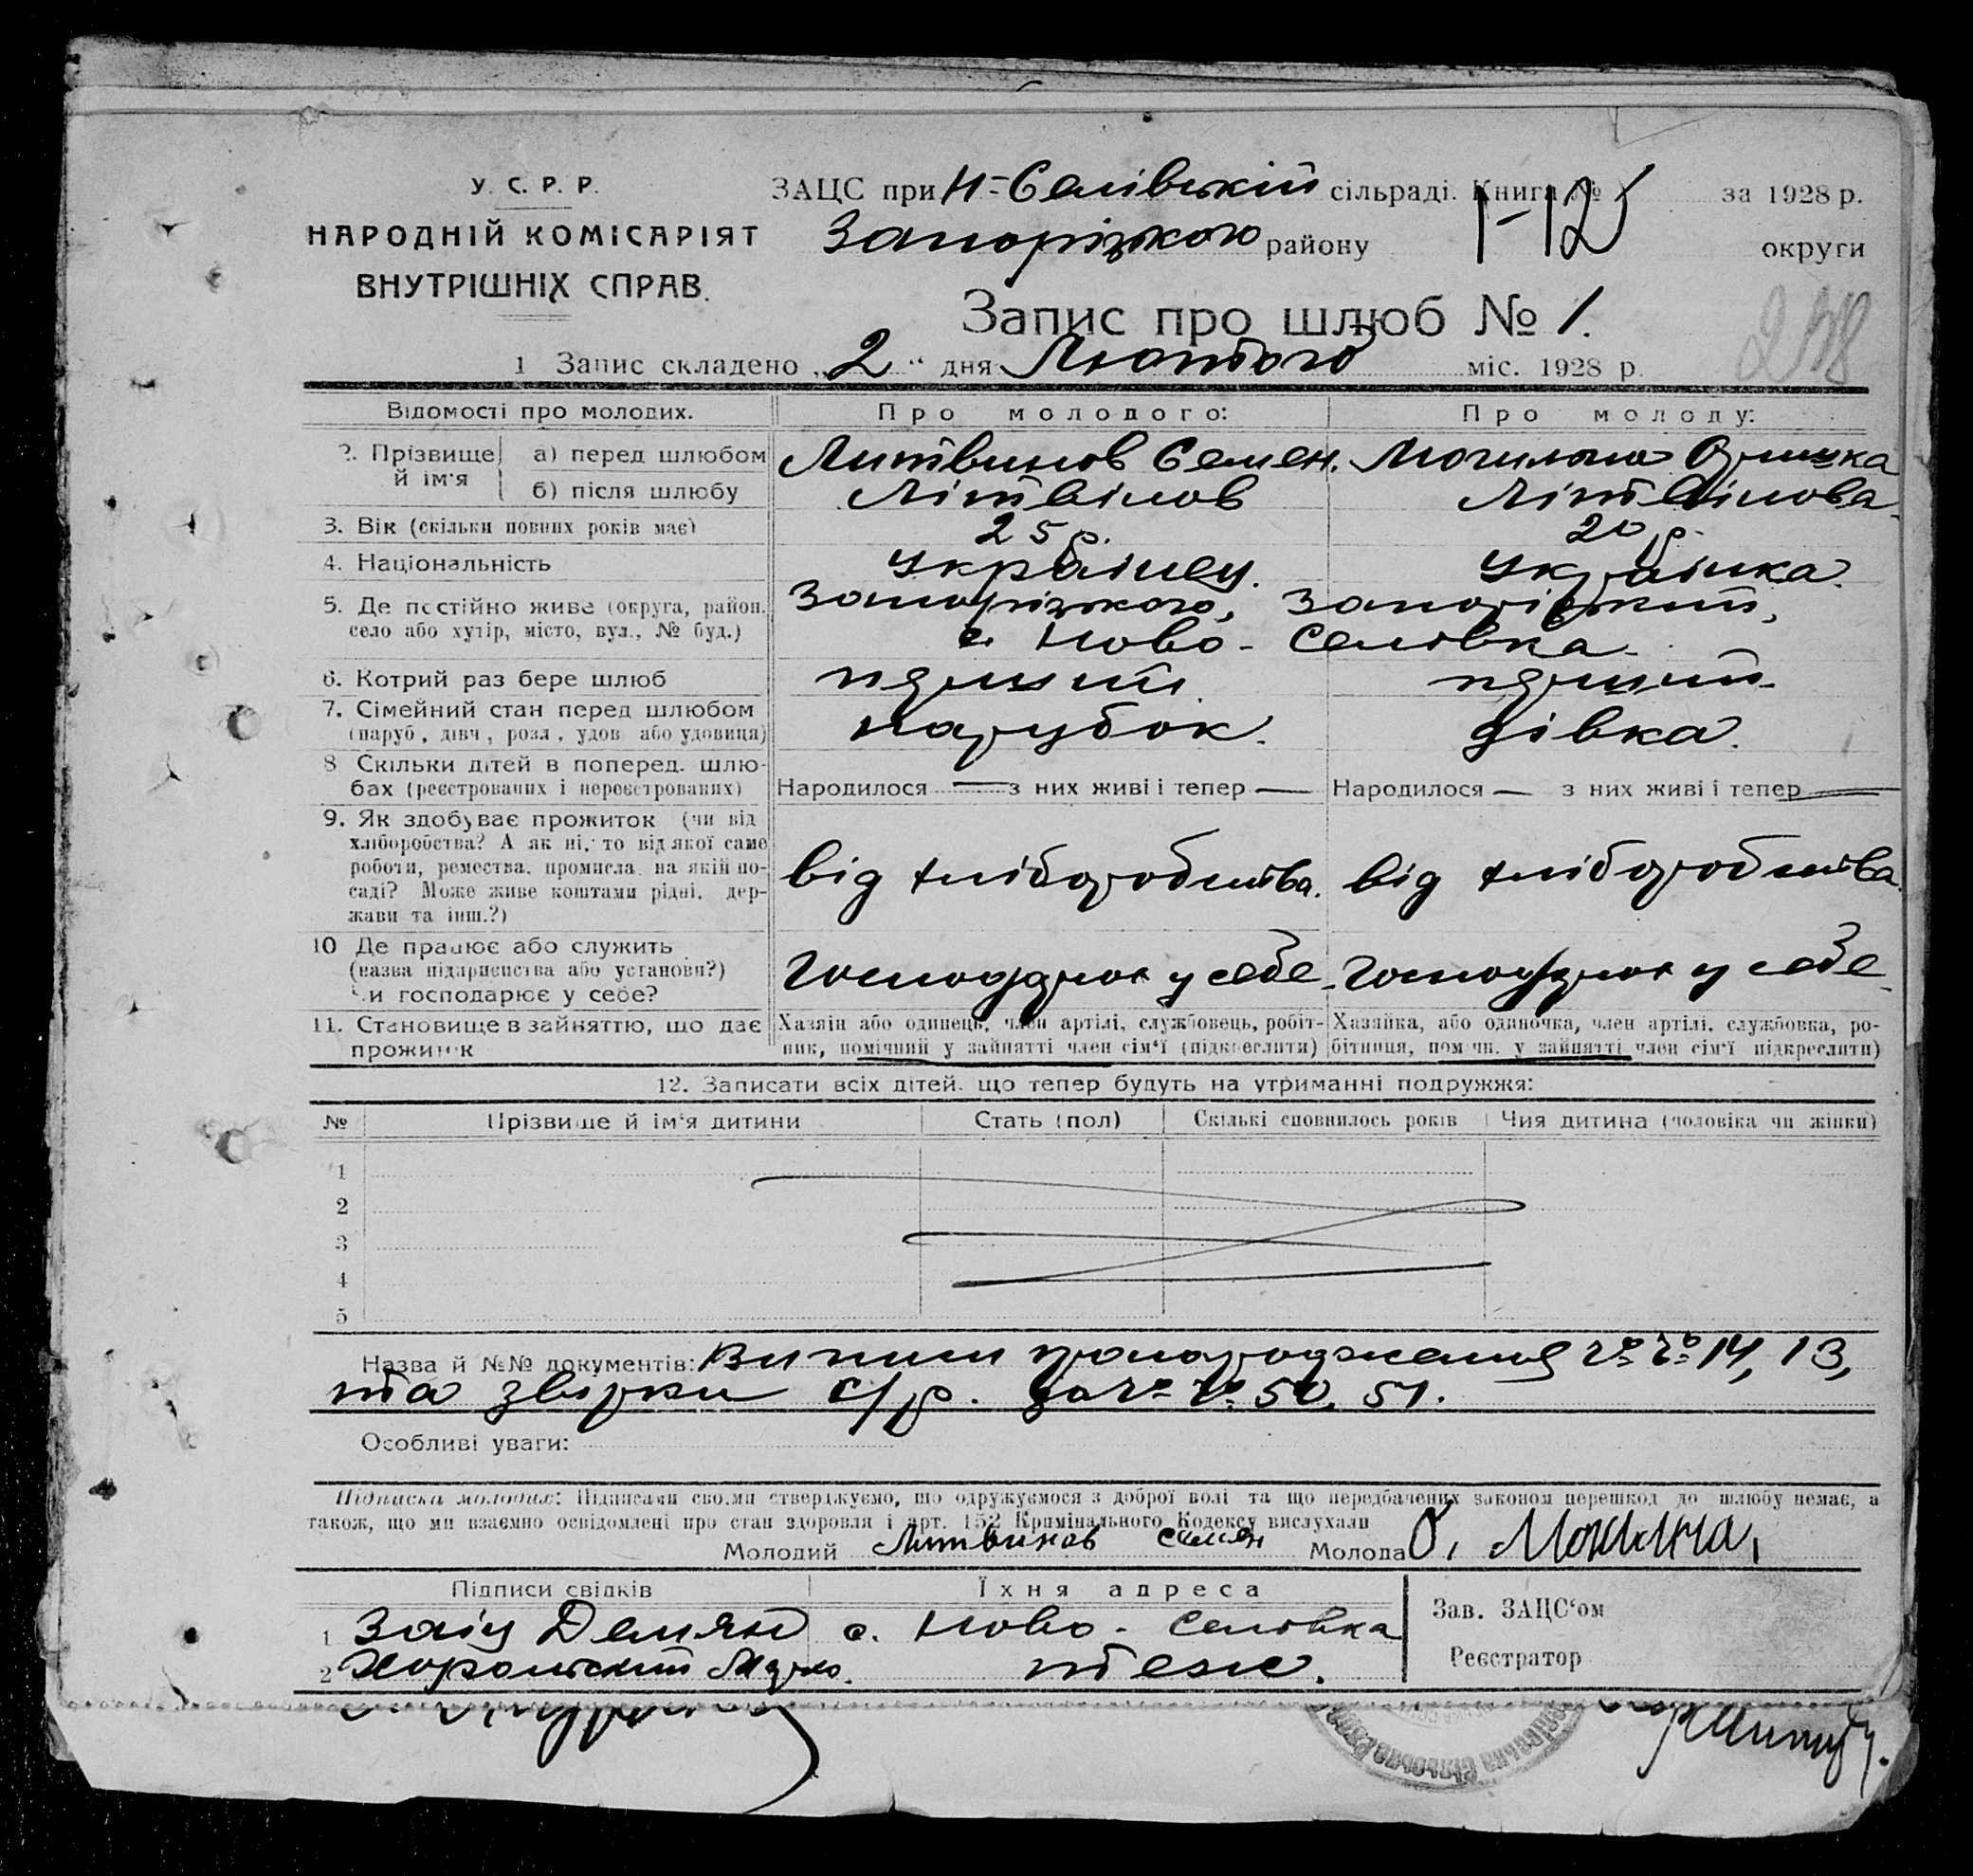 У. С. Р. Р.
НАРОДНІЙ КОМІСАРІЯТ
ВНУТРІШНІХ СПРАВ.
ЗАЦС при Н-Селівській сільраді. Книга № за 1928 р.
Запорізького району 1-125 округи
Запис про шлюб № 1.
238
1 Запис складено „2“ дня Лютого міс. 1928 р.
Відомості про молодих. Про молодого: Про молоду:
2. Прізвище й ім'я а) перед шлюбом Литвинов Семен. Оришка
б) після шлюбу Літвінов Літвінова
3. Вік (скільки повних років має) 25 р. 20 р.
4. Національність Українец. Українка.
5. Де постійно живе (округа, район. Запорізького, Запорізький,
село або хутір, місто, вул., № буд.) с. Ново-Селівка.
6. Котрий раз бере шлюб перший перший
7. Сімейний стан перед шлюбом парубок. дівка.
(паруб, дівч, розл, удов або удовиця)
8 Скільки дітей в поперед. шлю- Народилося — з них живі і тепер — Народилося — з них живі і тепер —
бах (реєстрованих і нереєстрованих)
9. Як здобуває прожиток (чи від
хліборобства? А як ні, то від якої саме
роботи, ремества, промисла, на якій по-
саді? Може живе коштами рідні, дер-
жави та інш.?)
від хліборобства. від хліборобства.
10 Де працює або служить
(назва підприенства або установи?)
Чи господарює у себе?
у себе. у себе
11. Становище в зайняттю, що дає Хазяїн або одинець, член артілі, службовець, робіт- Хазяйка, або одиночка, член артілі, службовка, ро-
прожиток ник, помічний у зайнятті член сім'ї (підкреслити) бітниця, помічн. у зайнятті член сім'ї підкреслити)
12. Записати всіх дітей, що тепер будуть на утриманні подружжя:
№ Прізвище й ім'я дитини Стать (пол) Скількі сповнилось років Чия дитина (чоловіка чи жінки)
1
2
3
4
5
Назва й №№ документів: Виписи № № 14, 13,
та с/р. за № № 50, 51.
Особливі уваги:
Підписка молодих: Підписами своїми стверджуємо, що одружуємося з доброї волі та що передбачених законом перешкод до шлюбу немає, а
також, що ми взаємно освідомлені про стан здоровля і арт. 152 Кримінального Кодексу вислухали
Молодий Литвинов Семен Молода О.
Підписи свідків Їхня адреса Зав. ЗАЦС'ом
1 Заіц Демян с. Ново-Селівка
2 теж. Реєстратор